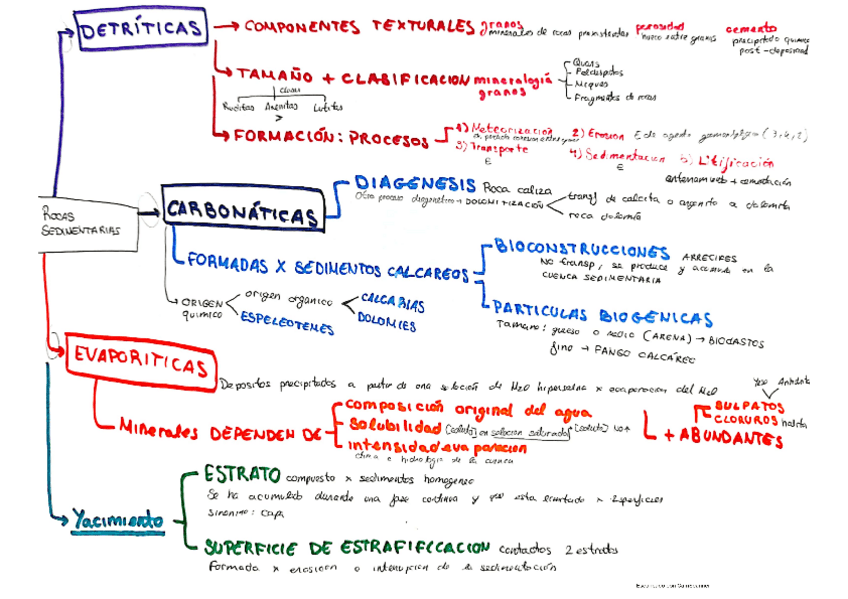 DETRÍTICAS
COMPONENTES TEXTURALES
granos
minerales de rocas preexistentes
porosidad
hueco entre granos
cemento
precipitado químico
post-deposicional
TAMAÑO + CLASIFICACION
clases
Ruditas Arenitas Lutitas
mineralogía
granos
Cuarzo
Feldespatos
Micas
Fragmentos de rocas
FORMACIÓN: PROCESOS
1) Meteorización
2) Erosion
3) Transporte
4) Sedimentacion
5) Litificación
+ cementación
ROCAS
SEDIMENTARIAS
CARBONÁTICAS
DIAGENESIS Roca caliza
Otro proceso diagenetico → DOLOMITIZACIÓN
transf de calcita o aragonito a dolomita
roca dolomia
FORMADAS X SEDIMENTOS CALCAREOS
BIOCONSTRUCCIONES ARRECIFES
No transp, se produce y acumula en la
CUENCA SEDIMENTARIA
PARTICULAS BIOGENICAS
Tamaño: grueso o medio (ARENA) → BIOCLASTOS
fino → FANGO CALCÁREO
ORIGEN
quimico
origen organico
ESPELEOTEMES
CALCARIAS
DOLOMIES
EVAPORITICAS
Depositos precipitados a partir de una solución de H2O hipersalina x evaporacion del H2O
Minerales DEPENDEN DE
composición original del agua
solubilidad
intensidad evaporacion
clima e hidrologia de la cuenca
+ ABUNDANTES
Yeso Anhidrita
SULFATOS
CLORUROS halita
Yacimiento
ESTRATO compuesto x sedimentos homogeneo
Se ha acumulado durante una fase continua y que esta limitado x 2 superficies
sinonimo: capa
SUPERFICIE DE ESTRAFIFICCACION contactos 2 estratos
Formada x erosion o interrupcion de la sedimentación
Escaneado con CamScanner